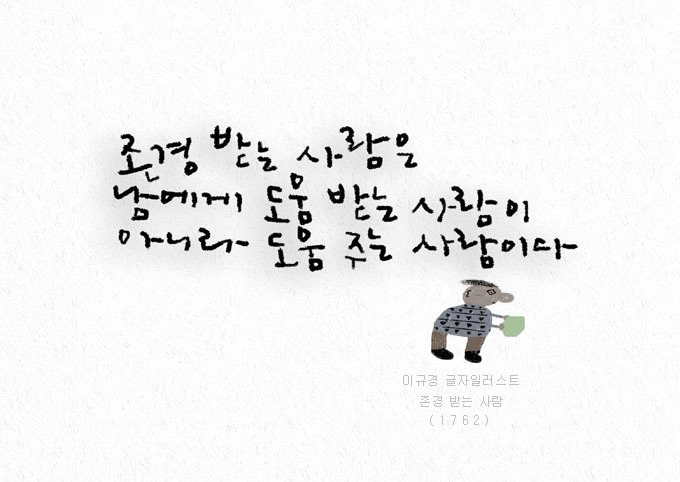 존경 받는 사람은
남에게 도움 받는 사람이
아니라 도움 주는 사람이다
이규경 글자일러스트
존경 받는 사람
(1762)